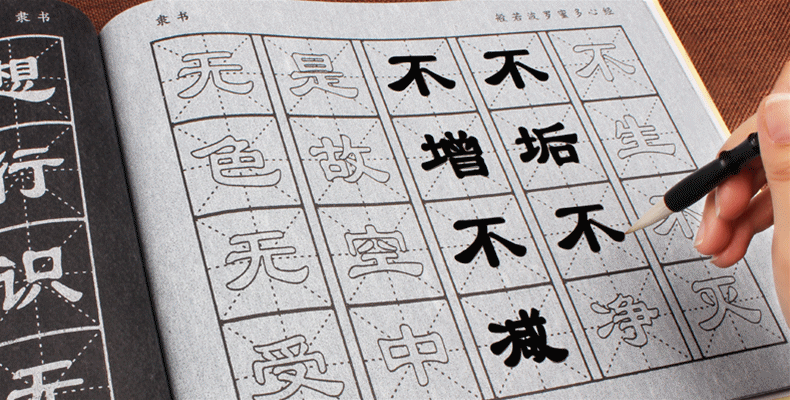 般若波罗蜜多心经
隶书
不生不灭
不垢不净
不增不减
是故空中
无色无受
隶书
想行识无